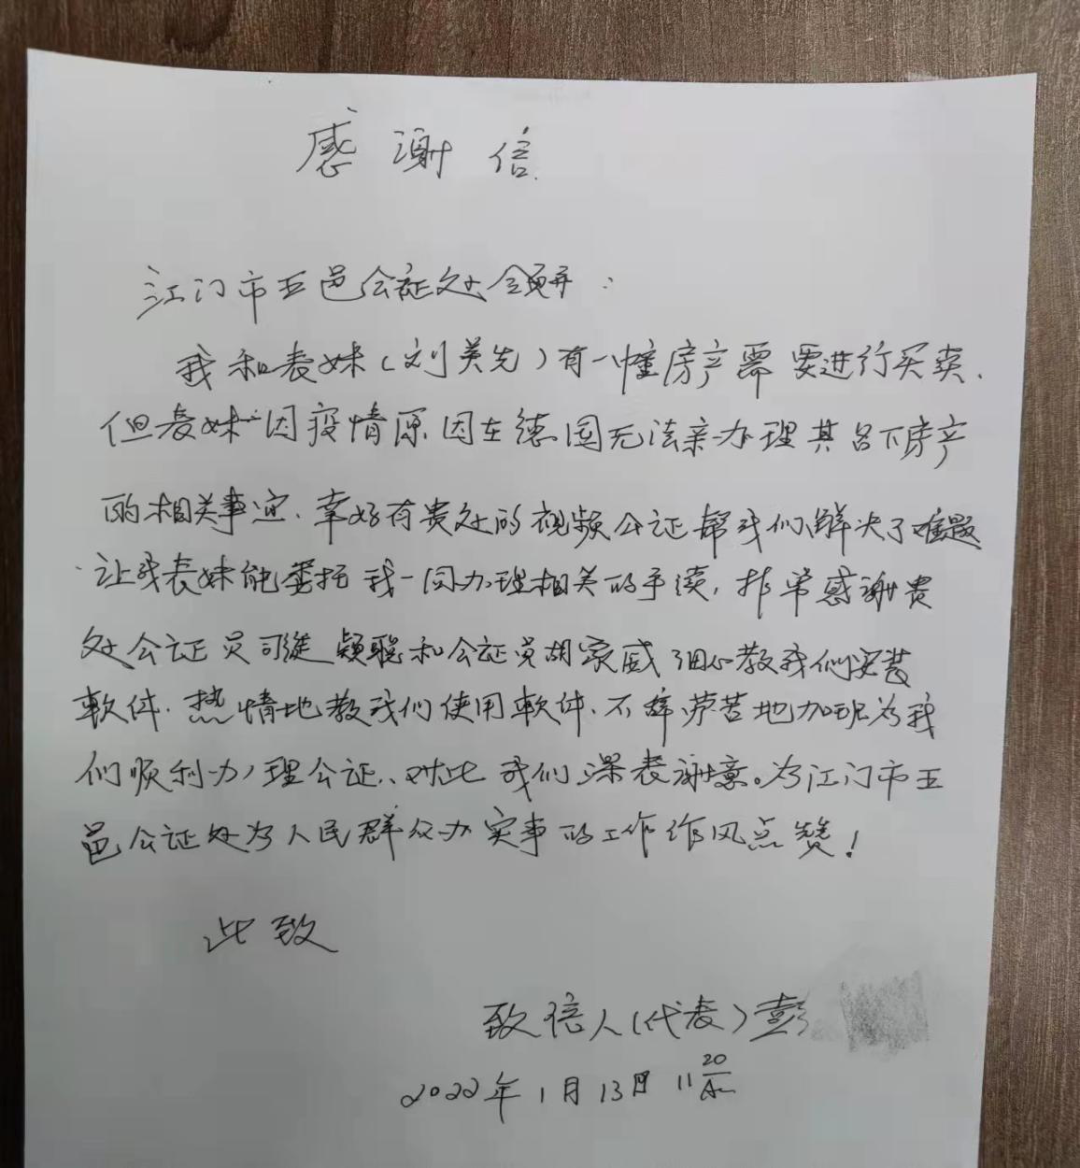 感谢信
江门市五邑公证处领导：
我和表妹（刘美先）有一幢房产需要进行买卖.
但表妹因疫情原因在德国无法亲办理其名下房产
的相关事宜、幸好有贵处的视频公证帮我们解决了难题
让我表妹能委托我一同办理相关的手续，非常感谢贵
处公证员司徒颖聪和公证员胡家威细心教我们安装
軟件.热情地教我们使用軟件、不辞劳苦地加班为我
们顺利办理公证、对此我们深表谢意。为江门市五
邑公证处为人民群众办实事的工作作风点赞！
此致
致信人（代表）彭
2022年1月13日 11 20